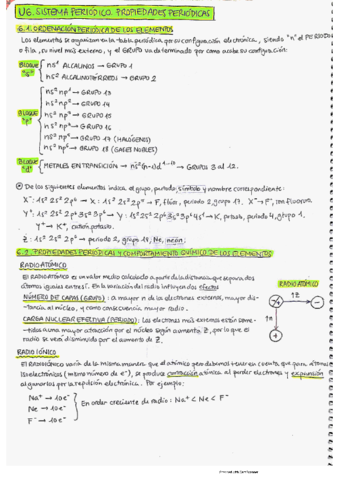 U6. SISTEMA PERIÓDICO. PROPIEDADES PERIÓDICAS
6.1. ORDENACIÓN PERIÓDICA DE LOS ELEMENTOS
Los elementos se organizan en la tabla periódica por su configuración electrónica, siendo "n" el PERIODO
o fila, su nivel más externo, y el GRUPO va determinado por como acaba su configuración:
BLOQUE "s"
ns¹ ALCALINOS → GRUPO 1
ns² ALCALINOTÉRREOS → GRUPO 2
BLOQUE "p"
ns² np¹ → GRUPO 13
ns² np² → GRUPO 14
ns² np³ → GRUPO 15
ns² np⁴ → GRUPO 16
ns² np⁵ → GRUPO 17 (HALÓGENOS)
ns² np⁶ → GRUPO 18 (GASES NOBLES)
BLOQUE "d"
METALES EN TRANSICIÓN → ns² (n-1)d¹⁻¹⁰ → GRUPOS 3 al 12.
De los siguientes elementos indica el grupo, periodo, símbolo y nombre correspondiente:
X⁻: 1s² 2s² 2p⁶ → X: 1s² 2s² 2p⁵ → F, flúor, periodo 2, grupo 17. X⁻ → F⁻, ion fluoruro.
Y⁺: 1s² 2s² 2p⁶ 3s² 3p⁶ → Y: 1s² 2s² 2p⁶ 3s² 3p⁶ 4s¹ → K, potasio, periodo 4, grupo 1.
Y⁺ → K⁺, catión potasio.
Z: 1s² 2s² 2p⁶ → periodo 2, grupo 18, Ne, neón.
6.2. PROPIEDADES PERIÓDICAS Y COMPORTAMIENTO QUÍMICO DE LOS ELEMENTOS
RADIO ATÓMICO
El RADIO ATÓMICO es un valor medio calculado a partir de la distancia que separa dos
átomos iguales entre sí. En la variación del radio influyen dos efectos
NÚMERO DE CAPAS (GRUPO): a mayor n de los electrones externos, mayor dis-
tancia al núcleo, y como consecuencia mayor radio.
CARGA NUCLEAR EFECTIVA (PERIODO): Los electrones más externos están some-
tidos a una mayor atracción por el núcleo según aumenta Z, por lo que el
radio se ven disminuido por el aumento de Z.
RADIO ATÓMICO
↑Z
−
↑n
+
RADIO IÓNICO
El RADIO IÓNICO varía de la misma manera que el atómico pero debemos tener en cuenta que para átomos
isoelectrónicos (mismo número de e⁻), se produce contracción atómica al perder electrones y expansión
al ganarlos por la repulsión electrónica. Por ejemplo:
Na⁺ → 10e⁻
Ne → 10e⁻
F⁻ → 10e⁻
En orden creciente de radio: Na⁺ < Ne < F⁻